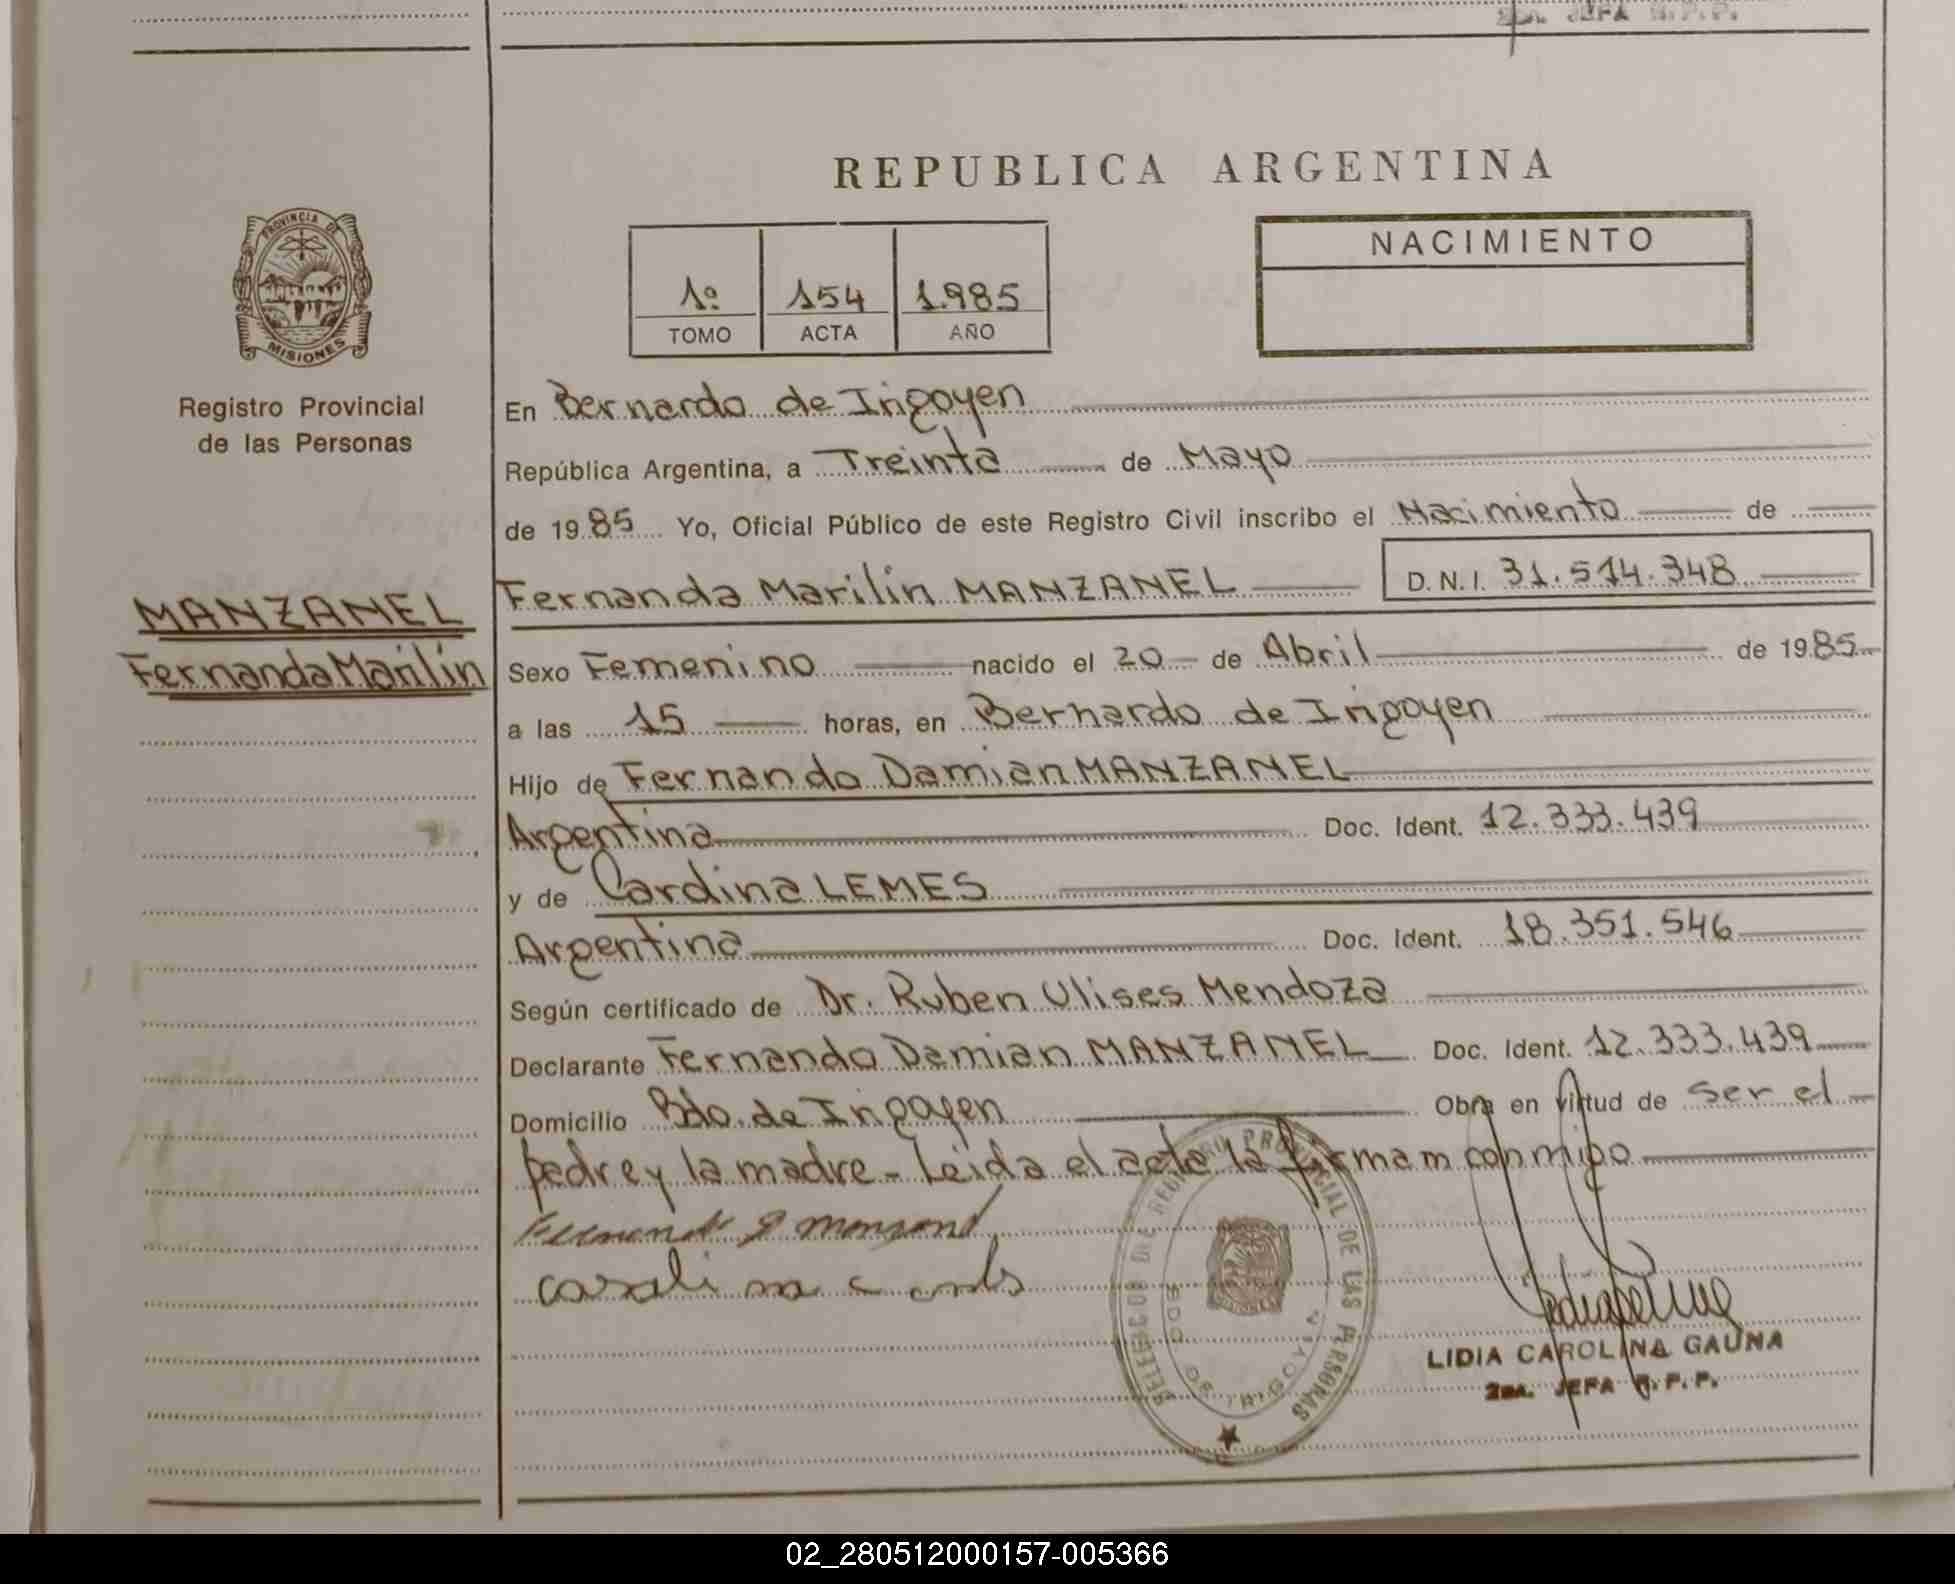 2da. JEFA R.P.P.
REPUBLICA ARGENTINA
PROVINCIA DE
MISIONES
Registro Provincial
de las Personas
1º 154 1.985
TOMO ACTA AÑO
NACIMIENTO
En Bernardo de Irigoyen
República Argentina, a Treinta de Mayo
de 1985 Yo, Oficial Público de este Registro Civil inscribo el Nacimiento de
MANZANEL
Fernanda Marilin
Fernanda Marilin MANZANEL D.N.I. 31.514.348
Sexo Femenino nacido el 20 de Abril de 1985
a las 15 horas, en Bernardo de Irigoyen
Hijo de Fernando Damian MANZANEL
Argentina Doc. Ident. 12.333.439
y de Cardina LEMES
Argentina Doc. Ident. 18.351.546
Según certificado de Dr. Ruben Ulises Mendoza
Declarante Fernando Damian MANZANEL Doc. Ident. 12.333.439
Domicilio Bdo. de Irigoyen Obra en virtud de ser el
padre y la madre - Leida el acta la firmam conmigo
DEL REGISTRO PROVINCIAL DE LAS PERSONAS
BDO. DE IRIGOYEN
MISIONES
LIDIA CAROLINA GAUNA
2da. JEFA R.P.P.
02_280512000157-005366